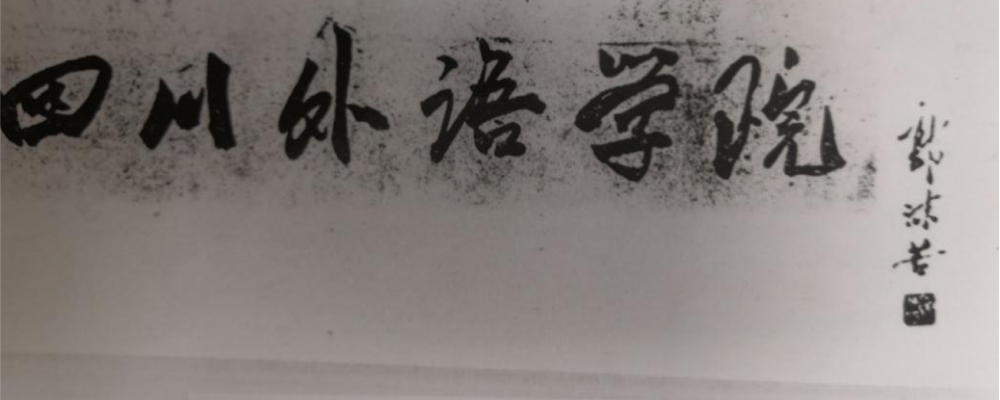 四川外语学院
郭沫若